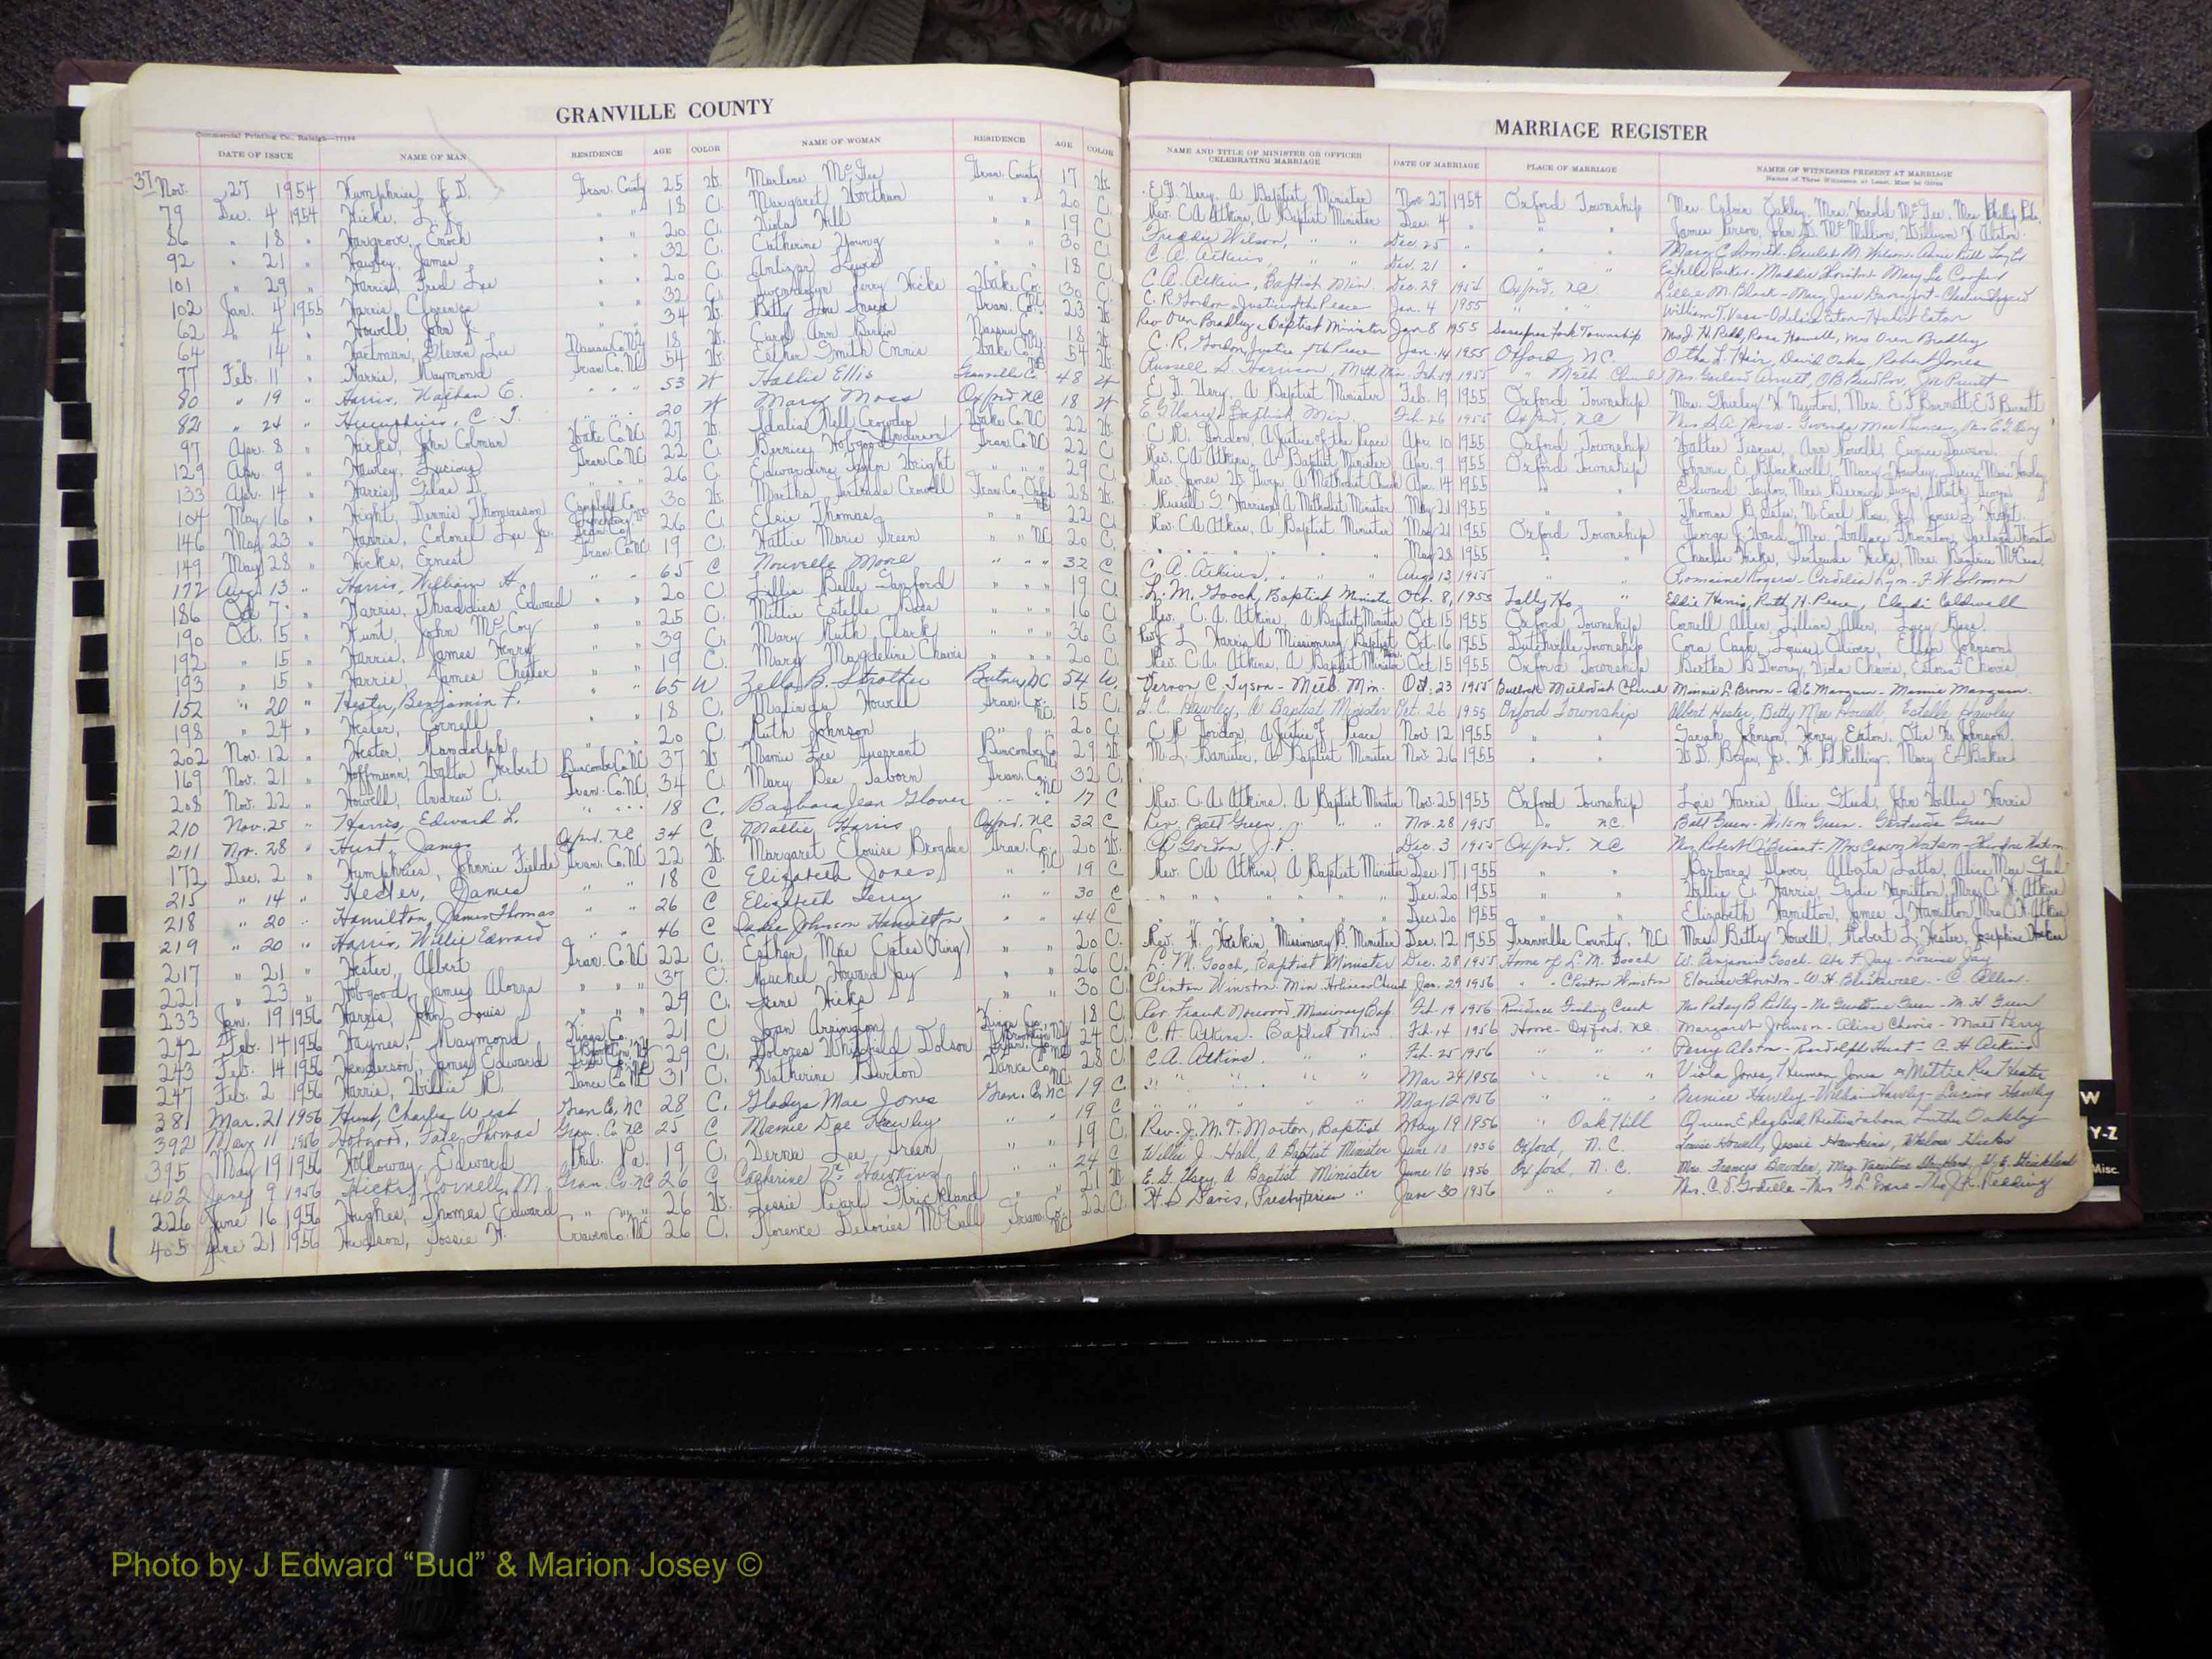 GRANVILLE COUNTY
Commercial Printing Co., Raleigh
DATE OF ISSUE NAME OF MAN RESIDENCE AGE COLOR NAME OF WOMAN RESIDENCE AGE COLOR
37 Nov. 27 1954 Humphries, J. D. Gran. County 25 W. Marlene McGee Gran. County 17 W.
79 Dec. 4 1954 Hicks, L. J. " " 18 C. Margaret Northam " " 20 C.
86 " 18 " Hargrove, Enoch " " 20 C. Viola Hill " " 19 C.
92 " 21 " Hawley, James 32 C. Catherine Young 30 C.
101 " 29 " Harris, Fred Lee 20 C. Lewis 18 C.
102 Jan. 4 1955 Harris, Clarence 32 C. Gwendolyn Perry Hicks Wake Co. 30 C.
62 " 4 " Howell, John J. 34 W. Betty Lou Gran. Co. 23 W.
64 " 14 " Hartman, Steven Lee Nassau Co. N.Y. 18 W. Carol Ann Nassau Co. N.Y. 18 W.
77 Feb. 11 " Harris, Raymond Gran. Co. N.C. 54 W. Esther Smith Ennis Wake Co. N.C. 54 W.
80 " 19 " Harris, Nathan E. " " " 53 W Hallie Ellis Granville Co. 48 W
82 " 24 " Humphries, C. T. 20 W Mary Moss Oxford NC 18 W
97 Apr. 8 " Hicks, John Colman Wake Co. N.C. 27 W. Idalia Nell Crowder Wake Co. N.C. 22 W.
129 Apr. 9 " Hawley, Lucious Gran. Co. N.C. 22 C. Bernice Hobgood (Anderson) Gran. Co. N.C. 22 C.
133 Apr. 14 " Harris, Silas D. " " " 26 C. Edwardine Taylor Wright " " " 29 C.
104 May 16 " Hight, Dennis Thomasson Campbell Co. 30 W. Martha Gertrude Crowell Gran. Co. 28 W.
146 May 23 " Harris, Colonel Lee Jr. Gran. Co. 26 C. Elsie Thomas 22 C.
149 May 28 " Hicks, Ernest Gran. Co. N.C. 19 C. Hattie Marie Green " " N.C. 20 C.
172 Aug. 13 " Harris, William H. " " 65 C Nouvelle Moore " " " 32 C
186 Oct. 7 " Harris, Thaddies Edward " " 20 C. Lillie Belle Sanford " " " 19 C.
190 Oct. 15 " Hunt, John McCoy " " 25 C. Mittie Estelle Bass " " " 16 C.
192 " 15 " Harris, James Henry " " 39 C. Mary Ruth Clark " " " 36 C.
193 " 15 " Harris, James Chester " " 19 C. Mary Magdeline Chavis " " " 20 C.
152 " 20 " Hester, Benjamin F. " " 65 W Zella B. Strother Butner, NC 54 W.
198 " 24 " Hester, Cornell " " 18 C. Malinda Howell Gran. Co. N.C. 15 C.
202 Nov. 12 " Hester, Randolph " " 20 C. Ruth Johnson " " 20 C.
169 Nov. 21 " Hoffmann, Walter Herbert Buncombe Co. N.C. 37 W. Mamie Lee Buncombe Co. 29 W.
208 Nov. 22 " Howell, Andrew C. Gran. Co. N.C. 34 C. Mary Bee Taborn Gran. Co. N.C. 32 C.
210 Nov. 25 " Harris, Edward L. " " " " 18 C. Barbara Jean Glover 17 C
211 Nov. 28 " Hunt, James Oxford, NC 34 C. Mattie Harris Oxford, NC 32 C
172 Dec. 2 " Humphries, Johnnie Fielde Gran. Co. N.C. 22 W. Margaret Elouise Brogden Gran. Co. NC 20 W.
215 " 14 " Hester, James " " 18 C Elizabeth Jones " " 19 C
218 " 20 " Hamilton, James Thomas " " 26 C Elizabeth Terry " " 30 C
219 " 20 " Harris, Willie Edward " " 46 C Sadie Johnson Hamilton " " 44 C
217 " 21 " Hester, Albert Gran. Co. N.C. 22 C. Esther Mae Cates (King) " " 20 C.
221 " 23 " Hobgood, James Alonza " " " 37 C. Howard Jay " " 26 C.
233 Jan. 19 1956 Harris, John Louis " " " 29 C. Irene Hicks " " 30 C.
242 Feb. 14 1956 Haynes, Raymond Kings Co. Brooklyn, N.Y. 21 C Joan Arrington Kings Co. Brooklyn, N.Y. 18 C.
243 Feb. 14 1956 Henderson, James Edward 29 C. Dolores Whitfield Dolson 24 C.
247 Feb. 2 1956 Harris, Willie R. Vance Co. N.C. 31 C. Katherine Burton Vance Co. N.C. 28 C.
381 Mar. 21 1956 Hunt, Charles West Gran. Co, NC 28 C. Gladys Mae Jones Gran. Co, NC 19 C.
392 May 11 1956 Hobgood, Tate Thomas Gran. Co NC 25 C Mamie Doe Hawley " " 19 C
395 May 19 1956 Holloway, Edward Phil. Pa. 19 C. Verna Lee Green " " 19 C.
402 June 9 1956 Hicks, Cornell M. Gran. Co. NC 26 C Catherine Hawkins " " 24 C
226 June 16 1956 Hughes, Thomas Edward " " " 26 W. Jessie Pearl Strickland " " 21 W
405 June 21 1956 Hudson, Jossie H. Craven Co. NC 26 C. Florence Delories McCall Gran. Co. NC 22 C.
MARRIAGE REGISTER
NAME AND TITLE OF MINISTER OR OFFICER CELEBRATING MARRIAGE DATE OF MARRIAGE PLACE OF MARRIAGE NAMES OF WITNESSES PRESENT AT MARRIAGE
Names of Three Witnesses, at Least, Must be Given
E. G. Usry, A Baptist Minister Nov. 27 1954 Oxford Township Mrs. Calvin Oakley, Mrs. Harold McGee, Mrs.
Rev. C. A. Atkins, A Baptist Minister Dec. 4 " " " James Person, John D. McMillion, William H. Alston
Freddie Wilson, " " Dec. 25 " " " Mary E. Smith - Beulah M. Wilson - Annie Ruth Taylor
C. A. Atkins, " " Dec. 21 " " " Estelle Parker - Maddie Thornton - Mary Lee Cooper
C. A. Atkins, Baptist Min. Dec. 29 1954 Oxford, NC Lillie M. Black - Mary Jane Davenport -
C. R. Gordon - Justice of the Peace Jan. 4 1955 " " William T. Vass - Odelia Eaton - Hubert Eaton
Rev. Oren Bradley, Baptist Minister Jan 8 1955 Sassafras Fork Township Mrs. J. H. Rose Howell, Mrs Oren Bradley
C. R. Gordon, Justice of the Peace Jan. 14 1955 Oxford, NC. Otha L. Hair, David Oakes, Robert Jones
Russell S. Harrison, Meth. Min. Feb. 19 1955 " Meth. Church Mrs. Garland
E. G. Usry, A Baptist Minister Feb. 19 1955 Oxford Township Mrs. Shirley H. Newton, Mrs. E. F. Barnett, E. F. Barnett
E. G. Usry, Baptist Min. Feb. 26 1955 Oxford, NC Mrs. S. A. Moss - Mae Duncan, Mrs. E. G. Usry
C. R. Gordon, A Justice of the Peace Apr. 10 1955 Oxford Township Walter Ann Powell, Eunice Dawson
Rev. C. A. Atkins, A Baptist Minister Apr. 9 1955 Oxford Township Johnnie E. Blackwell, Mary Hawley, Marie Hawley
Rev. James W. A Methodist Church Apr. 14 1955 " " Edward Taylor, Mrs. Bernice
Russell S. Harrison, A Methodist Minister May 21 1955 " " Thomas B. N. Earl James S. Hight
Rev. C. A. Atkins, A Baptist Minister May 21 1955 Oxford Township George J. Ward, Mrs. Wallace Thornton, Thornton
" " " " " May 28 1955 " " Charlie Hicks, Gertrude Hicks, Mrs. Beatrice
C. A. Atkins, " " Aug. 13, 1955 " " Romaine Rogers - Cordelia Lyon - F. W. Solomon
L. M. Gooch, Baptist Minister Oct. 8, 1955 Tally Ho " Eddie Harris, Ruth H. Peace, Claudi Caldwell
Rev. C. A. Atkins, A Baptist Minister Oct. 15 1955 Oxford Township Cornell Allen, Lillian Allen, Lucy Bass
Rev. J. L. Harris, A Missionary Baptist Oct. 16 1955 Dutchville Township Cora Cash, Louise Oliver, Ellen Johnson
Rev. C. A. Atkins, A Baptist Minister Oct. 15 1955 Oxford Township Bertha B. Viola Chavis, Chavis
Vernon C. Tyson - Meth. Min. Oct. 23 1955 Bullock Methodist Church Minnie L. Brown - A. E. Mangum - Mamie Mangum
G. C. Hawley, A Baptist Minister Oct. 26 1955 Oxford Township Albert Hester, Betty Mae Howell, Estelle Hawley
C. R. Gordon, A Justice of Peace Nov. 12 1955 " " Sarah Johnson, Henry Eaton, Otis N. Johnson
M. L. Banister, A Baptist Minister Nov. 26 1955 " " W. D. Bryan, Jr. Mary E. Baker
Rev. C. A. Atkins, A Baptist Minister Nov. 25 1955 Oxford Township Lee Harris, Alice John Willie Harris
Rev. Ball Green, " " " Nov. 28 1955 " NC. Ball Green - Wilson Green - Gertrude Green
CR Gordon J.P. Dec. 3 1955 Oxford, NC Mrs. Robert O'Briant - Mrs Watson - Theodore Watson
Rev. C. A. Atkins, A Baptist Minister Dec. 17 1955 " " Barbara Glover, Alberta Latta, Alice Mae
" " " " " Dec. 20 1955 " " Willie E. Harris, Sadie Hamilton, Mrs. C. H. Atkins
" " " " " Dec. 20 1955 " " Elizabeth Hamilton, James T. Hamilton, Mrs. C. H. Atkins
Rev. H. Hoskin, Missionary B. Minister Dec. 12 1955 Granville County, NC Mrs. Betty Howell, Robert L. Hester, Josephine
L. M. Gooch, Baptist Minister Dec. 28 1955 Home of L. M. Gooch W. Benjamin Gooch - Abe F. Jay - Louise Jay
Clenton Winston - Min. Holiness Church Jan. 29 1956 " Clenton Winston Elouise Thornton - W. H. Blackwell - C. Allen
Rev. Frank Norwood, Missionary Bap. Feb. 19 1956 Residence Fishing Creek Mrs Patsy B. Mrs Green - M. H. Green
C. H. Atkins - Baptist Min. Feb. 14 1956 Home - Oxford, NC Margaret Johnson - Alice Chavis - Perry
C. A. Atkins, " " Feb. 25 1956 " " " Perry Alston - Randolph Hunt - C. H. Atkins
" " " " Mar. 24 1956 " " " Viola Jones, Herman Jones & Mittie Rea Hester
" " " " May 12 1956 " " " Bernice Hawley - William Hawley - Lucious Hawley
Rev. J. M. T. Morton, Baptist May 19 1956 " Oak Hill Queen E. Ragland Taborn, Luther Oakley
Willie J. Hall, A Baptist Minister June 10 1956 Oxford, N.C. Louise Howell, Jessie Hawkins, Thelma Hicks
E. G. Usry, A Baptist Minister June 16 1956 Oxford, N.C. Mrs. Frances Bowden, Mrs. Strickland
H. S. Davis, Presbyterian " June 30 1956 " " Mrs. C. S.
W
Y-Z
Misc.
Photo by J Edward “Bud” & Marion Josey ©